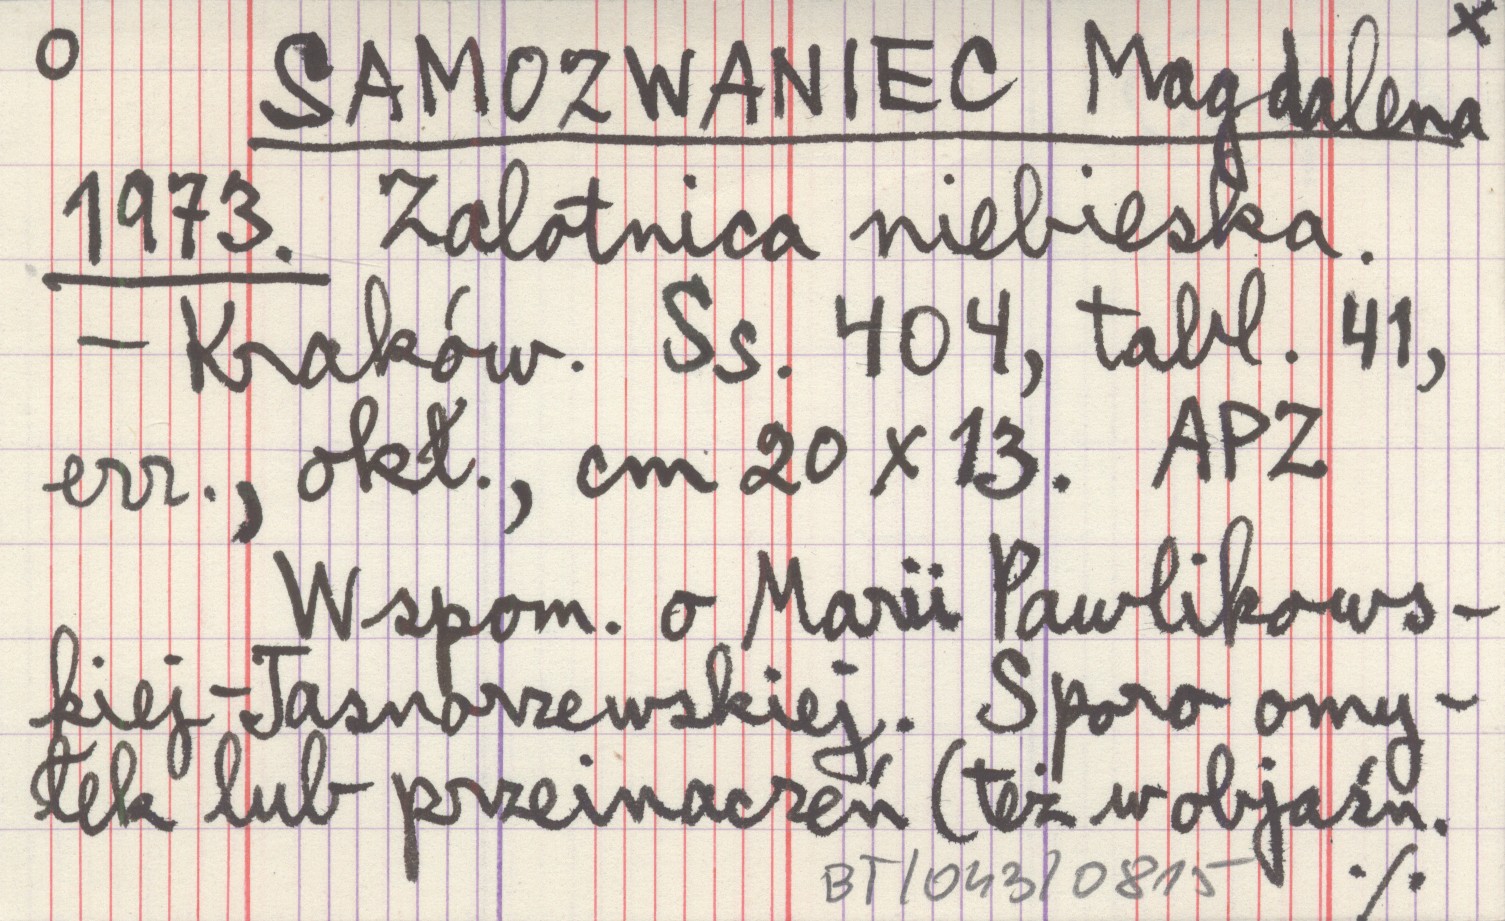 o SAMOZWANIEC Magdalena x
1973. Zalotnica niebieska.
– Kraków. Ss. 404, tabl. 41,
err., okł., cm 20 x 13. APZ
Wspom. o Marii Pawlikows-
kiej-Jasnorzewskiej. Sporo omy-
łek lub przeinaczeń (też w objaśn.
BT/043/0815 ./.